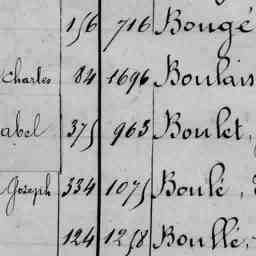 156 716 Bougé
Charles 84 1696 Boulais
abel 375 963 Boulet,
Joseph 334 1075 Boulé,
124 1258 Boullé,